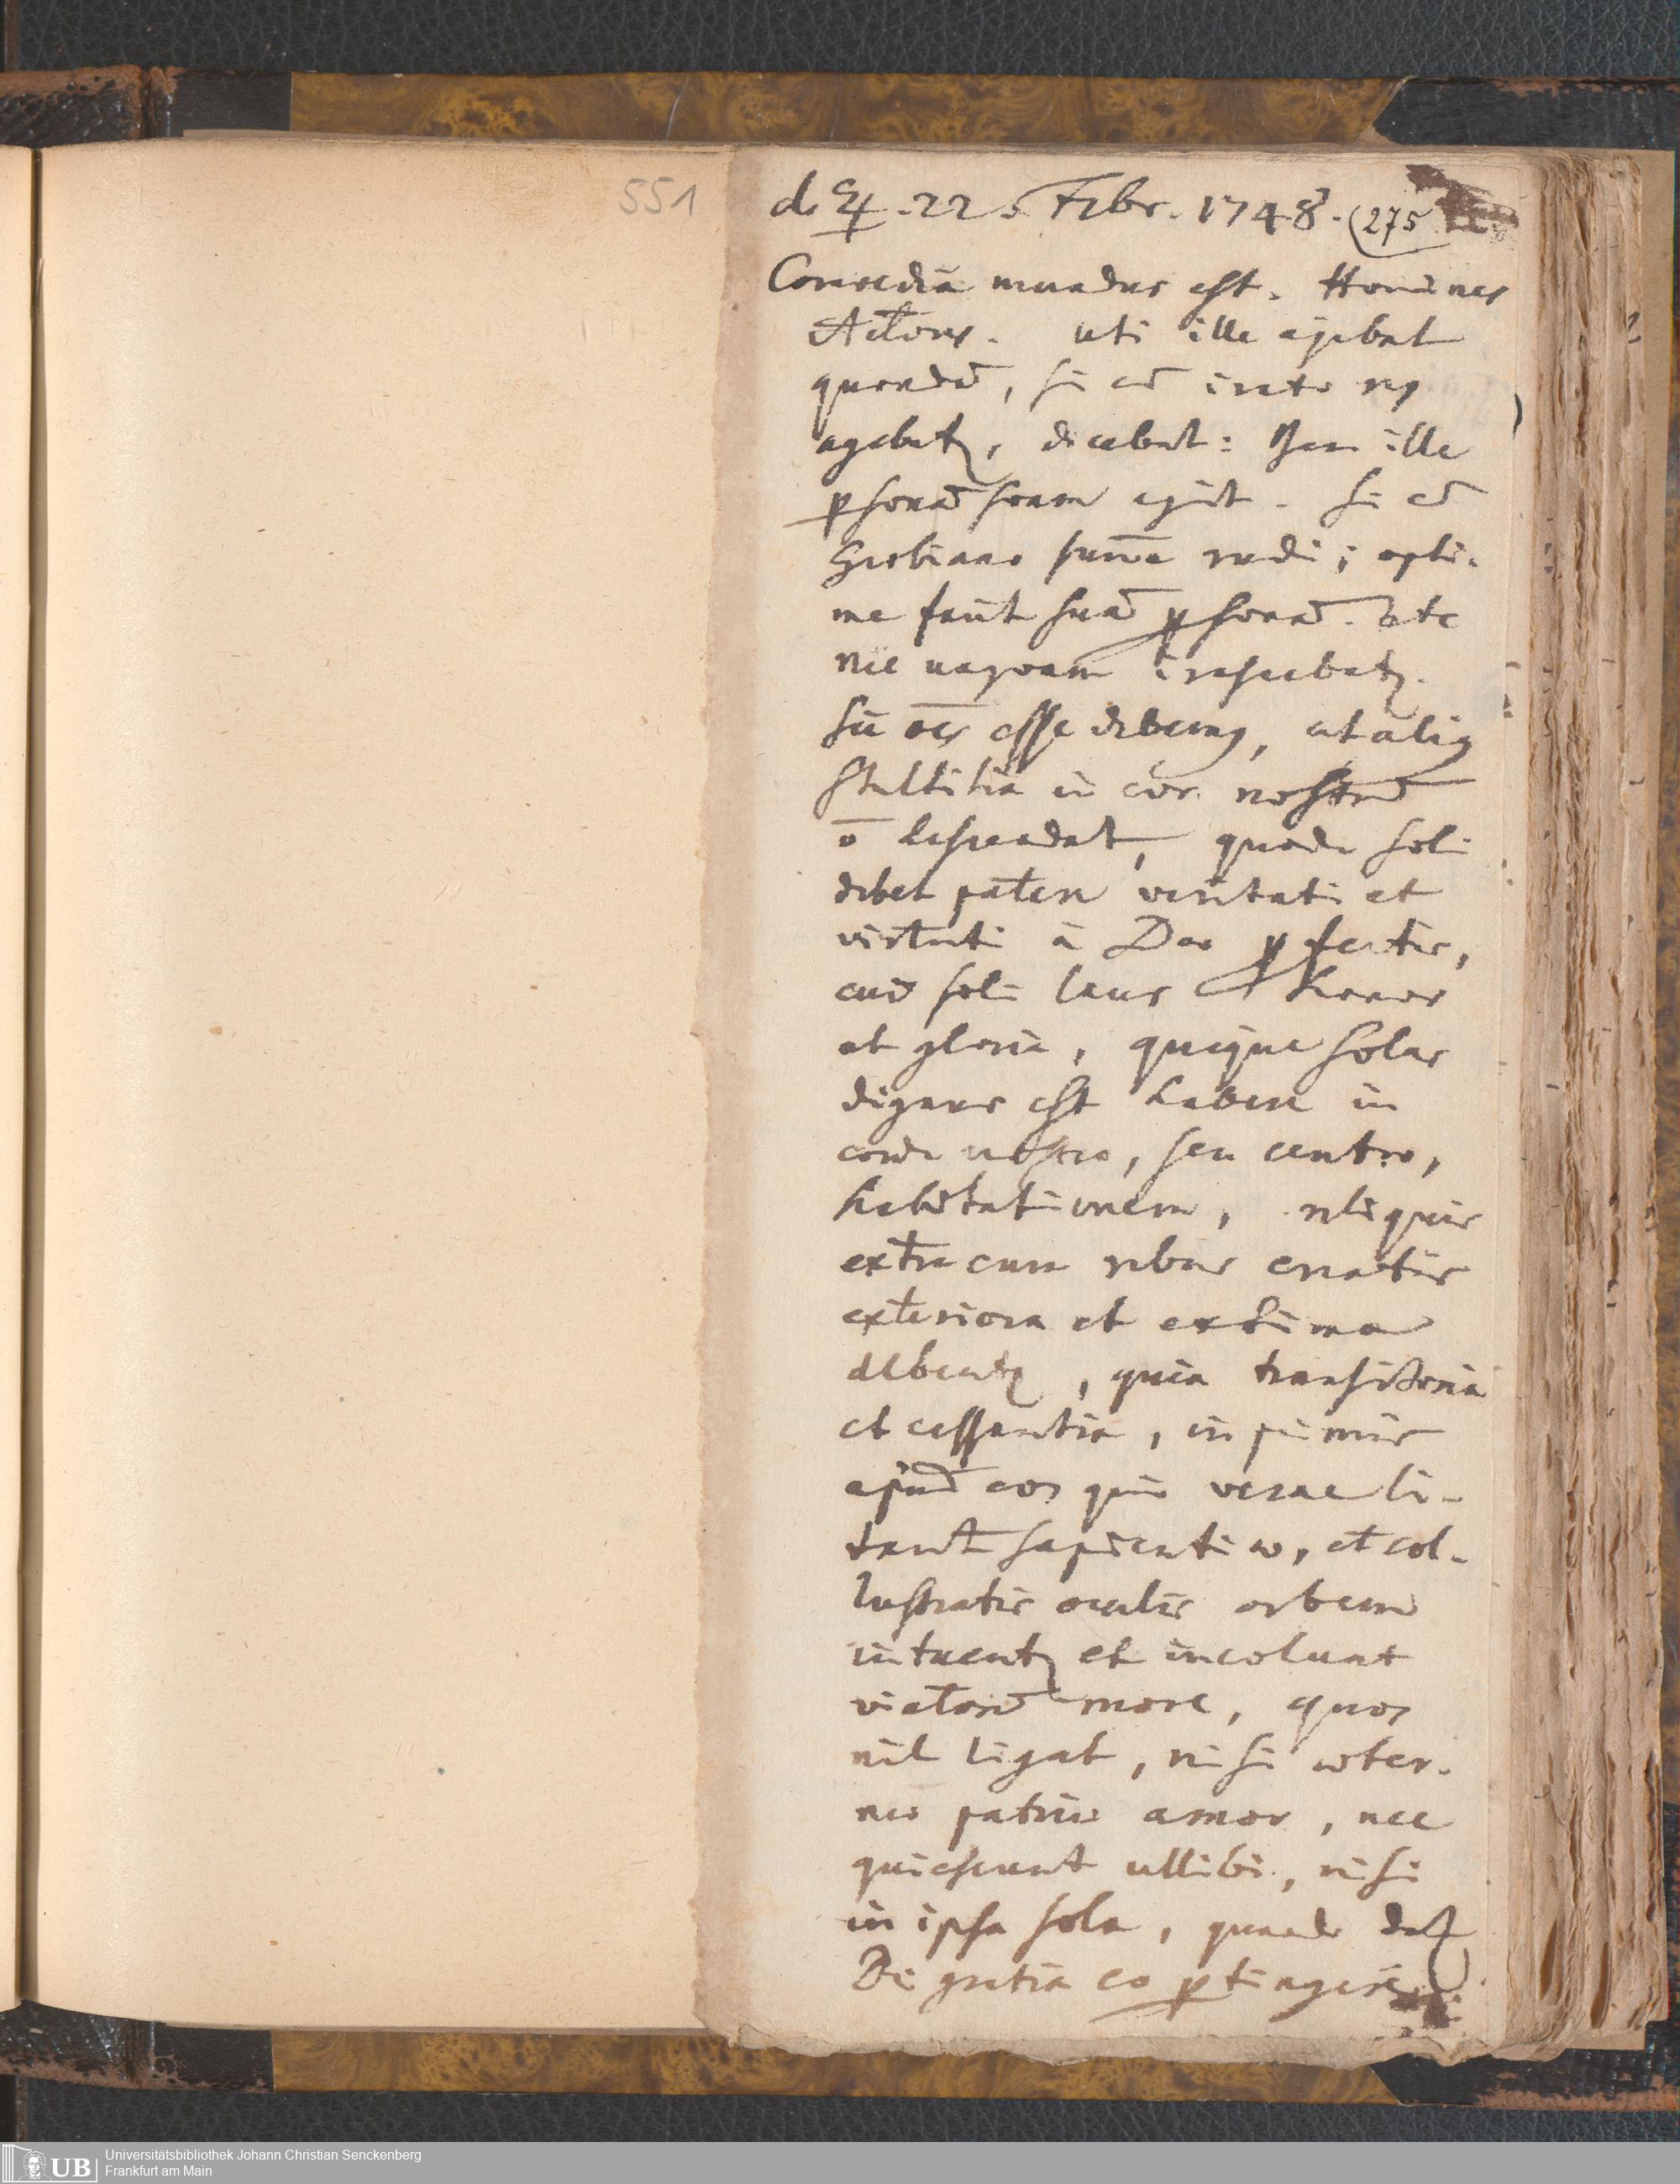 551
d. ♃ . 22. Febr. 1748. (275
Comoedia mundus est. Homines
Actores. uti ille ajebat
quondã, si cũ irato
agebat, dicebat: Bene ille
psonã suam egit. Si cũ
Grobiano sum̃e rudi; opti-
me facit suã psonã. etc
nec unquam irascebat.
Sic oẽs esse debem9, ut
stultitia in cor nostrũ
õ descendat, quod soli
debet patere veritati et
virtuti à Deo pfectis,
cui soli laus et honor
et gloria, quique solus
dignus est habere in
corde nostro, seu centro,
habitationem, reliquis
extra cum rebus creatis
exteriora et extima
debent, quia transitoria
et cessantia, inprimis
apud eos qui verae li-
tant sapientiae, et col-
lustratis oculis orbem
intuent et incolunt
viatorũ more, quos
nil ligat, nisi aeter-
nae patriae amor, nec
quiescunt ullibi, nisi
in ipsa sola, quando dat
Dei gratia eo ptingere.
UB Universitätsbibliothek Johann Christian Senckenberg
Frankfurt am Main